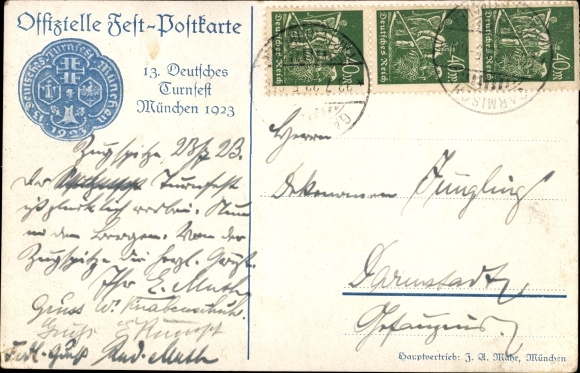 Offizielle Fest-Postkarte
13. Deutsches
Turnfest
München 1923
13. Deutsches Turnfest München
1923
Deutsches Reich
40 M
Deutsches Reich
40 M
Deutsches Reich
40 M
GARMISCH
Zugspitze 23/7 23.
Das Turnfest
ist glücklich vorbei. Nun
in den Bergen. Von der
Zugspitze die herzl. Grüße.
Ihr E. Muth
Gruss W. Knabenschuh
Gruß
Gruß Rud. Muth
Herrn
Dekonomen Jüngling
Darmstadt
Gefängnis.
Hauptvertrieb: J. A. Mahr, München